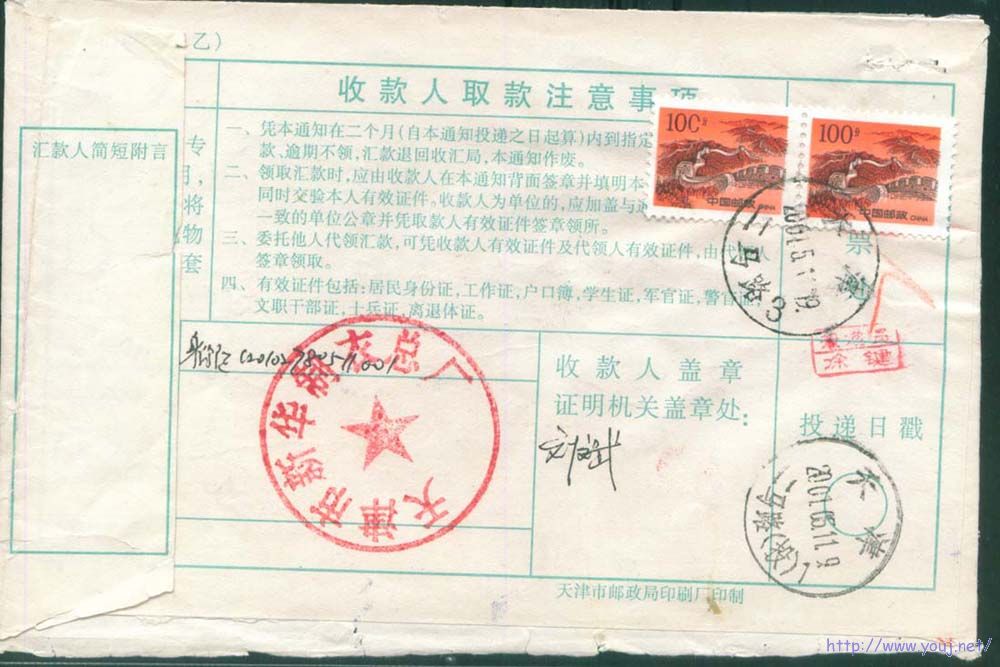 乙）
收款人取款注意事项
一、凭本通知在二个月（自本通知投递之日起算）内到指定
款、逾期不领，汇款退回收汇局，本通知作废。
二、领取汇款时，应由收款人在本通知背面签章并填明本
同时交验本人有效证件。收款人为单位的，应加盖与
一致的单位公章并凭取款人有效证件签章领所。
三、委托他人代领汇款，可凭收款人有效证件及代领人有效证件，由代领人
签章领取。
四、有效证件包括：居民身份证，工作证，户口簿，学生证，军官证，警官证，
文职干部证，士兵证，离退体证。
汇款人简短附言
专
用，将
物
套
票
100分
中国邮政 CHINA
100分
中国邮政 CHINA
天津
2001.5.11.19
涂键
收款人盖章
证明机关盖章处：
投递日戳
天津
2001.05.11.9
天津市新华
天津市邮政局印刷厂印制
http://www.youj.net/